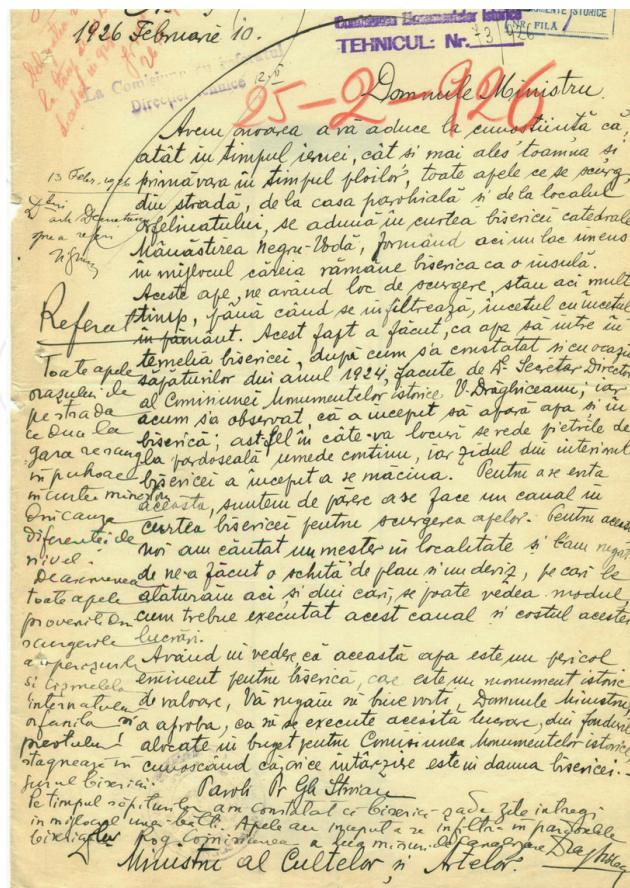 1926 Februarie 10.
Comisiunea Monumentelor Istorice
TEHNICUL: Nr. 73 926
NR. FILA
La Comisiune cu referatul
Direcției tehnice
25-2-926
Domnule Ministru,
Avem onoarea a vă aduce la cunoștiință că,
atât în timpul iernei, cât și mai ales toamna și
primăvara în timpul ploilor, toate apele ce se scurg,
din stradă, de la casa parohială și de la localul
Orfelinatului, se adună în curtea bisericii catedrale
Mânăstirea Negru-Vodă, formând aci un lac imens
în mijlocul căreia rămâne biserica ca o insulă.
Aceste ape, ne având loc de scurgere, stau aci mult
timp, până când se infiltrează, încetul cu încetul
în pământ. Acest fapt a făcut, ca apa să intre în
temelia bisericii, după cum s'a constatat și cu ocazia
săpăturilor din anul 1924, făcute de D-l Secretar Director
al Comisiunei Monumentelor istorice, V. Drăghiceanu; iar
acum s'a observat, că a început să apară apa și în
biserică; astfel în câte-va locuri se vede pietrile de
la pardoseală umede continu, iar zidul din interiorul
bisericii a început a se măcina. Pentru a se evita
aceasta, suntem de părere a se face un canal în
curtea bisericii pentru scurgerea apelor. Pentru aceasta
noi am căutat un mester în localitate și l'am rugat
de ne-a făcut o schită de plan și un deviz, pe cari le
alăturăm aci și din cari, se poate vedea modul
cum trebue executat acest canal și costul acestei
lucrări.
Având în vedere că această apa este un pericol
eminent pentru biserică, care este un monument istoric
de valoare, Vă rugăm să bine voiti, Domnule Ministru,
a aproba, ca să se execute această lucrare, din fondurile
alocate în buget pentru Comisiunea Monumentelor istorice,
cunoscând că, orice intârziere este în dauna bisericei.-
Paroh Pr Gh
Ministru al Cultelor și Artelor.
13 Febr. 1926
spre a referi
Referat
Toate apele
orașului de
pe strada
ce duce la
gara se scurg
în puhoae
în curtea
Din cauza
diferentei de
nivel.
De asemenea
toate apele
provenite din
scurgerile
acoperișurilor
și
internatului
orfanilor și
preotului
stagnează în
jurul bisericii.
Pe timpul săpăturilor am constatat că biserica zile întregi
în mijlocul unei bălti. Apele au început a se infiltra în pardoselile
bisericilor. Rog Comisiunea a lua măsuri de